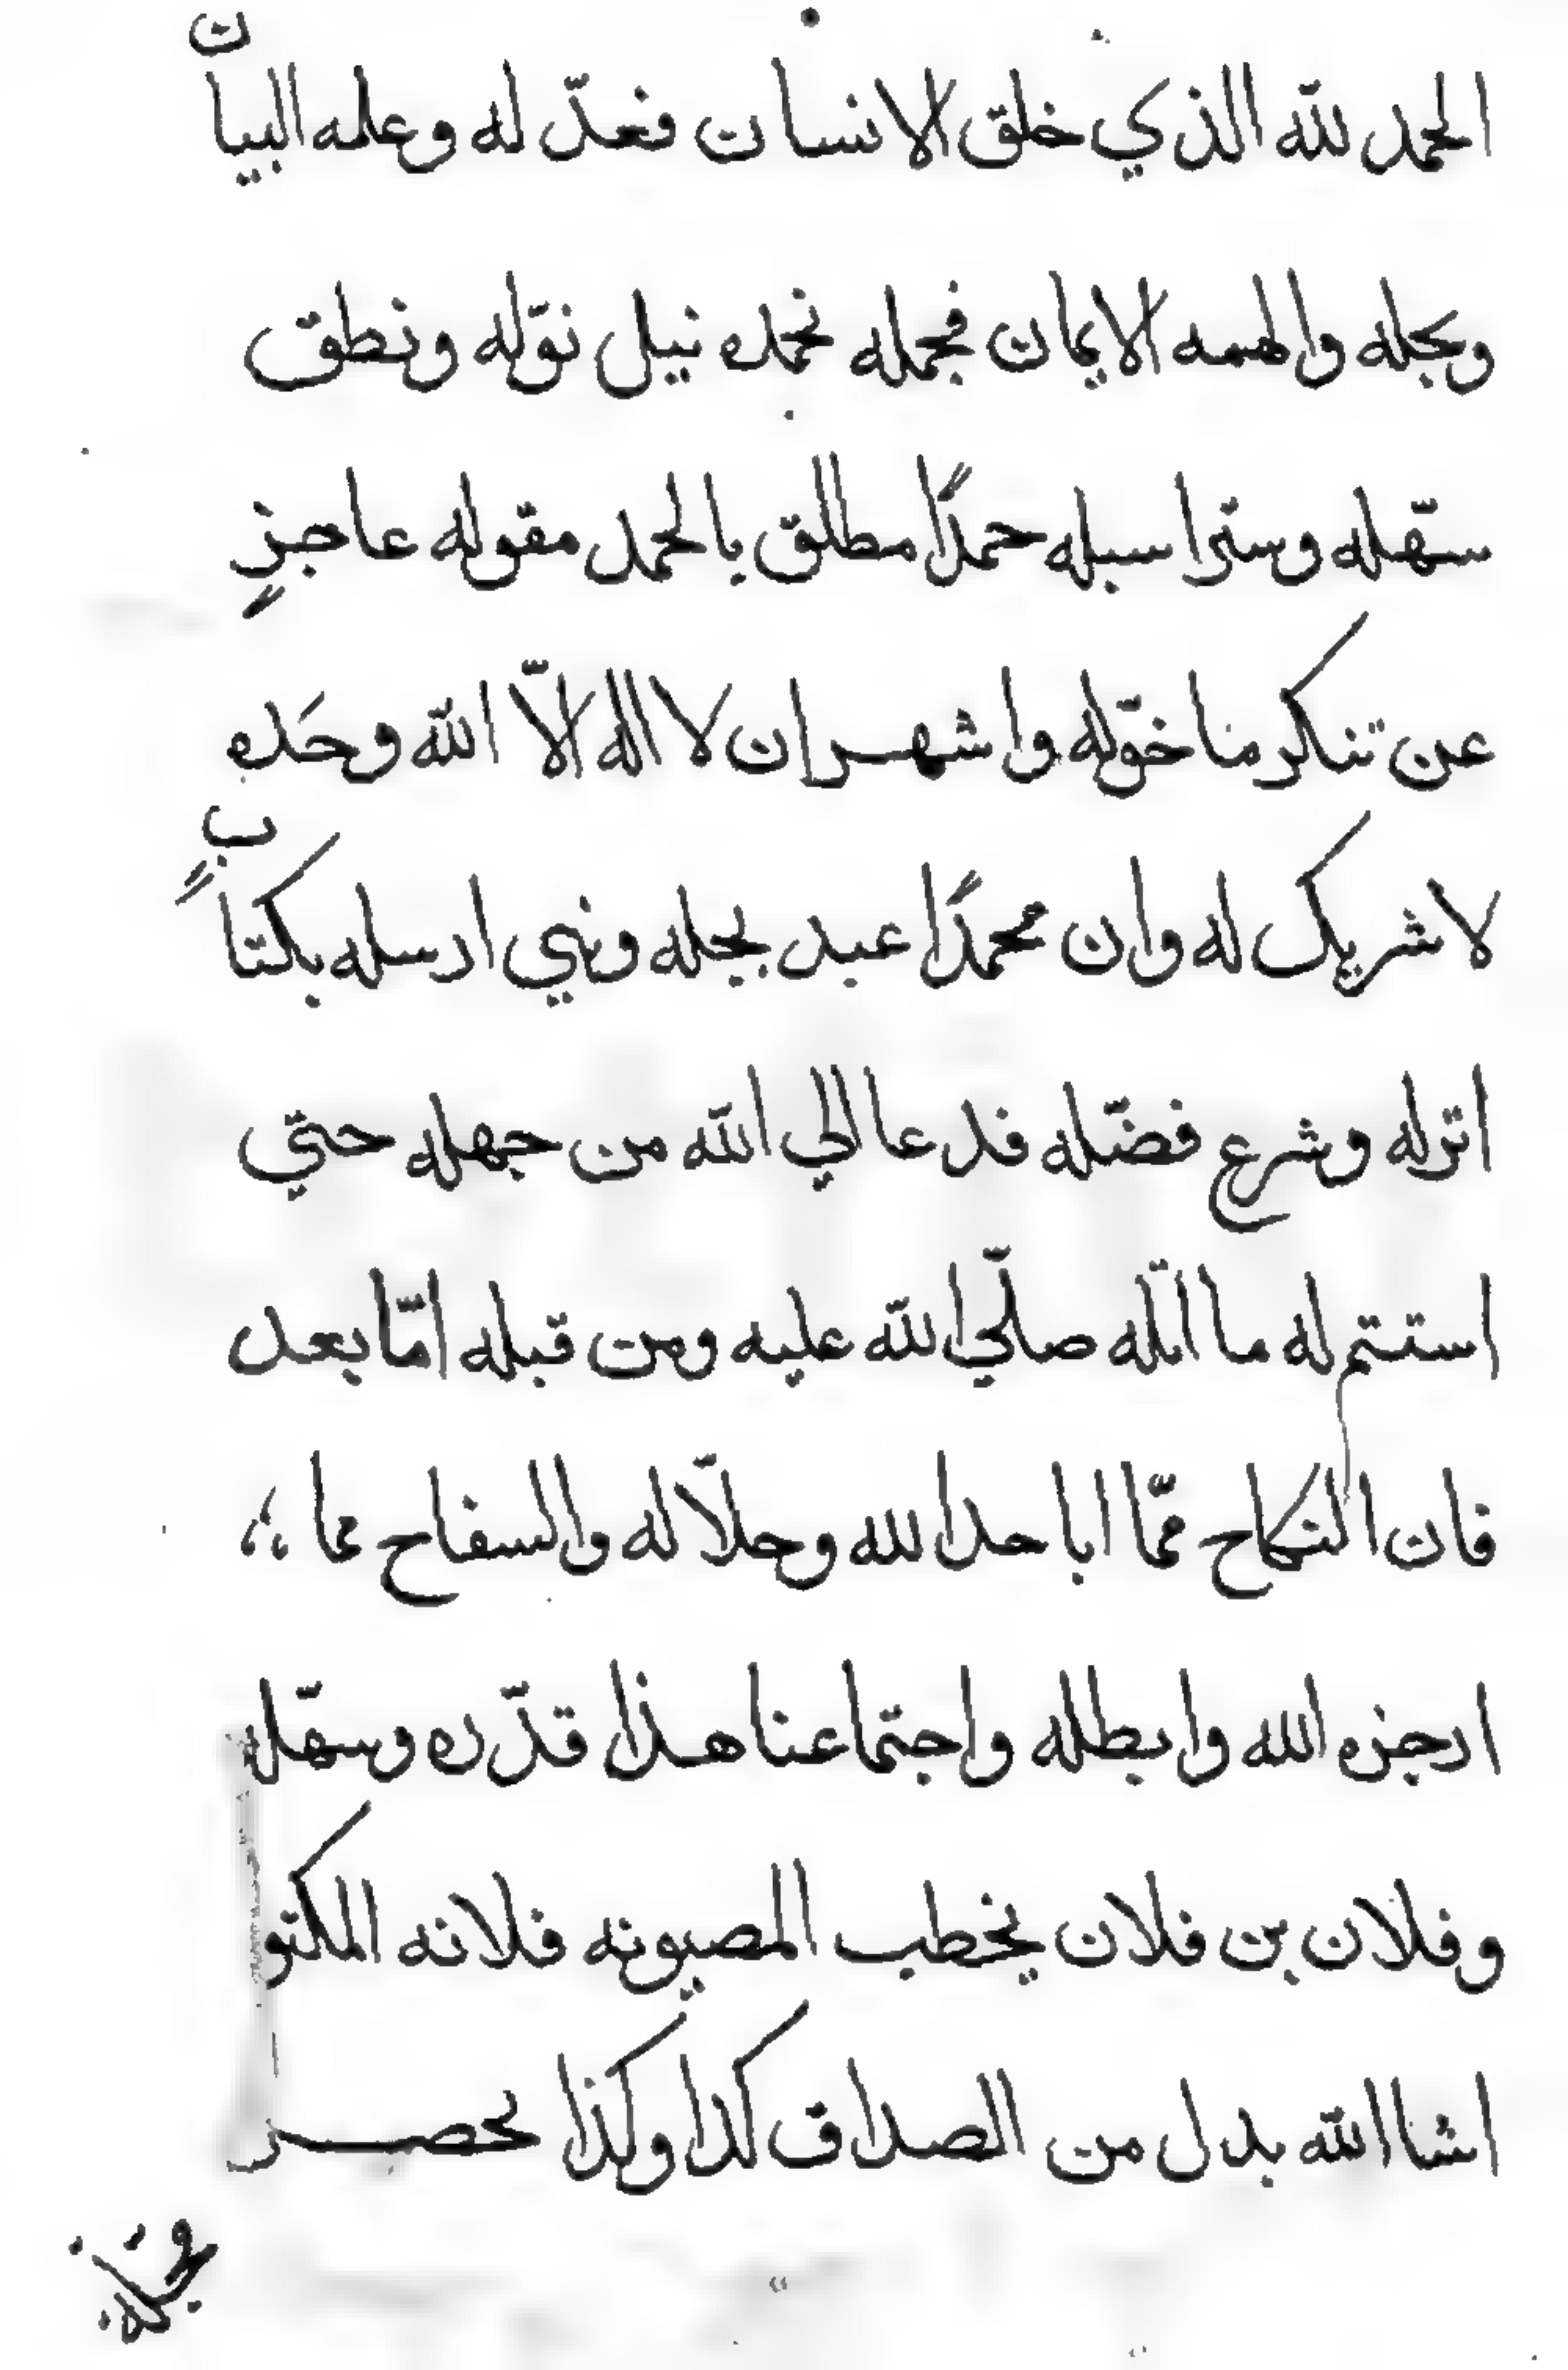 الحمد لله الذي خلق الانسان فعدّ له وعلمه البيان
وبجله والهمه الايمان فجمله نحمده نيل نوّله ونطق
سهّله وستر اسبله حمدًا مطلق بالحمد مقوله عاجزٍ
عن تنكر ما خوّله واشهر ان لا اله الاّ الله وحَده
لا شريك له وان محمدًا عبد بجله ونبي ارسله بكتابٍ
انزله وشرع فضّله فدعا الي الله من جهله حتي
استتم له ما امّله صلّي الله عليه ومن قبله امّا بعد
فان النكاح ممّا اباحد الله وحلاّ له والسفاح مما
ارجزه الله وابطله واجتماعنا هذا قدّره وسهّله
وفلان بن فلان يخطب المصبونه فلانه المكتو
اشا الله بدل من الصداق كدا وكذا بحصر